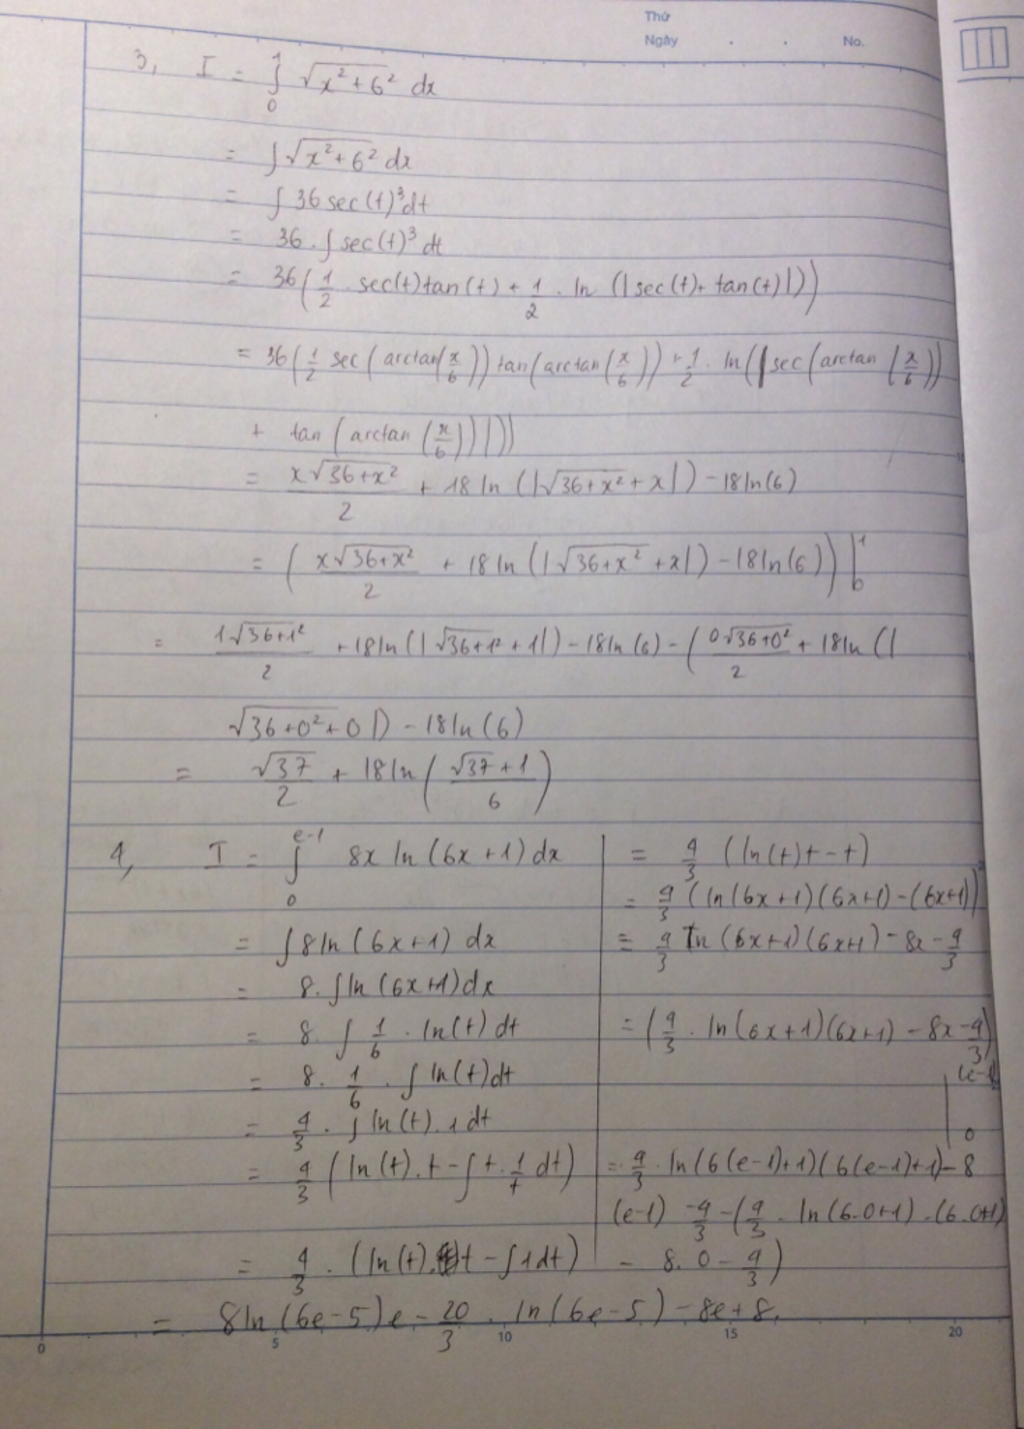 Thứ
Ngày . . No.
3, I = ∫₀¹ √(x²+6²) dx
= ∫√(x²+6²) dx
= ∫ 36 sec(t)³dt
= 36 . ∫ sec(t)³ dt
= 36(1/2 . sec(t)tan(t) + 1/2 . ln (|sec(t)+ tan(t)|))
= 36(1/2 sec(arctan(x/6))tan(arctan(x/6)) + 1/2 . ln(|sec(arctan(x/6))
+ tan(arctan(x/6))|))
= x√(36+x²)/2 + 18 ln (|√(36+x²) + x|) - 18 ln(6)
= (x√(36+x²)/2 + 18 ln (|√(36+x²) + x|) - 18 ln(6))|₀¹
= 1√(36+1²)/2 + 18ln(|√(36+1²) + 1|) - 18ln(6) - (0√(36+0²)/2 + 18ln(|
√(36+0²)+0|) - 18ln(6)
= √37/2 + 18ln((√37+1)/6)
4, I = ∫₀^(e-1) 8x ln(6x+1) dx
= ∫8ln(6x+1) dx
= 8.∫ln(6x+1)dx
= 8. ∫ 1/6 . ln(t) dt
= 8. 1/6 . ∫ ln(t)dt
= 4/3 . ∫ ln(t).1dt
= 4/3 (ln(t).t - ∫t.1/t dt)
= 4/3 . (ln(t).t - ∫1dt)
= 4/3 (ln(t)t - t)
= 4/3 (ln(6x+1)(6x+1)-(6x+1))
= 4/3 ln(6x+1)(6x+1) - 8x - 4/3
= (4/3 . ln(6x+1)(6x+1) - 8x - 4/3)
|₀^(e-1)
= 4/3 . ln(6(e-1)+1)(6(e-1)+1) - 8
(e-1) - 4/3 - (4/3 . ln(6.0+1).(6.0+1)
- 8.0 - 4/3)
= 8ln(6e-5)e - 20/3 . ln(6e-5) - 8e + 8.
0 5 10 15 20